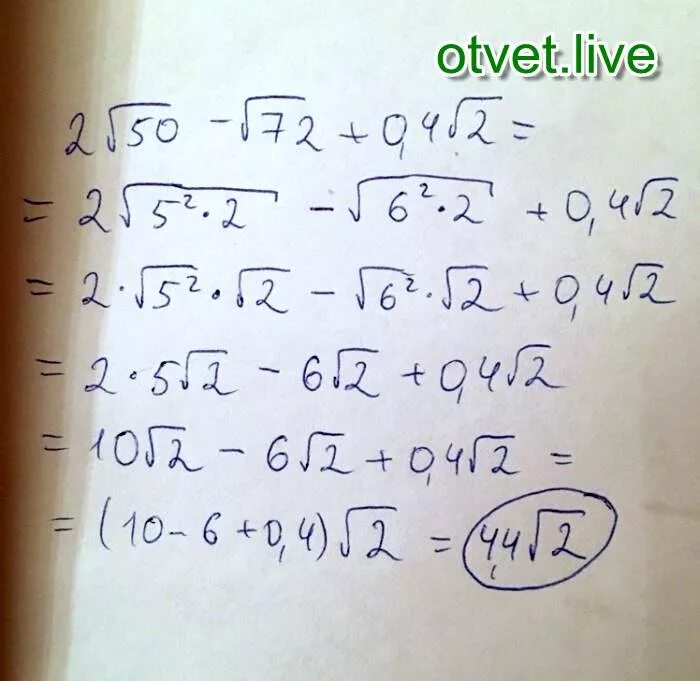 otvet.live
2√50 - √72 + 0,4√2 =
= 2√5²·2 - √6²·2 + 0,4√2
= 2·√5²·√2 - √6²·√2 + 0,4√2
= 2·5√2 - 6√2 + 0,4√2
= 10√2 - 6√2 + 0,4√2 =
= (10 - 6 + 0,4)√2 = 4,4√2